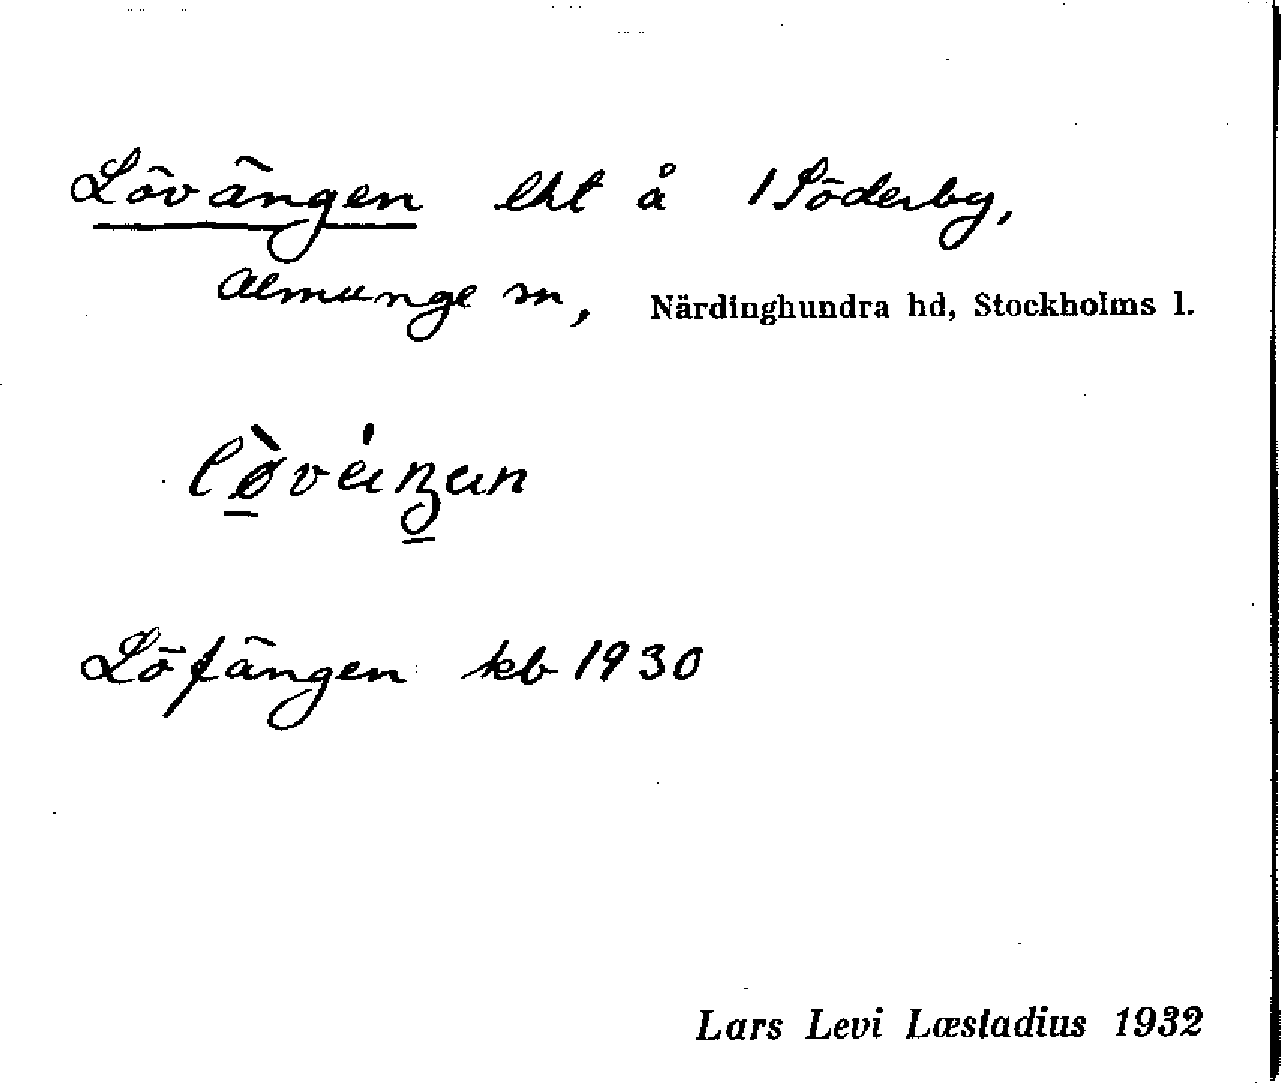 Lövängen lht å 1 Söderby,
Almunge sn, Närdinghundra hd, Stockholms l.
Löfängen kb 1930
Lars Levi Læstadius 1932